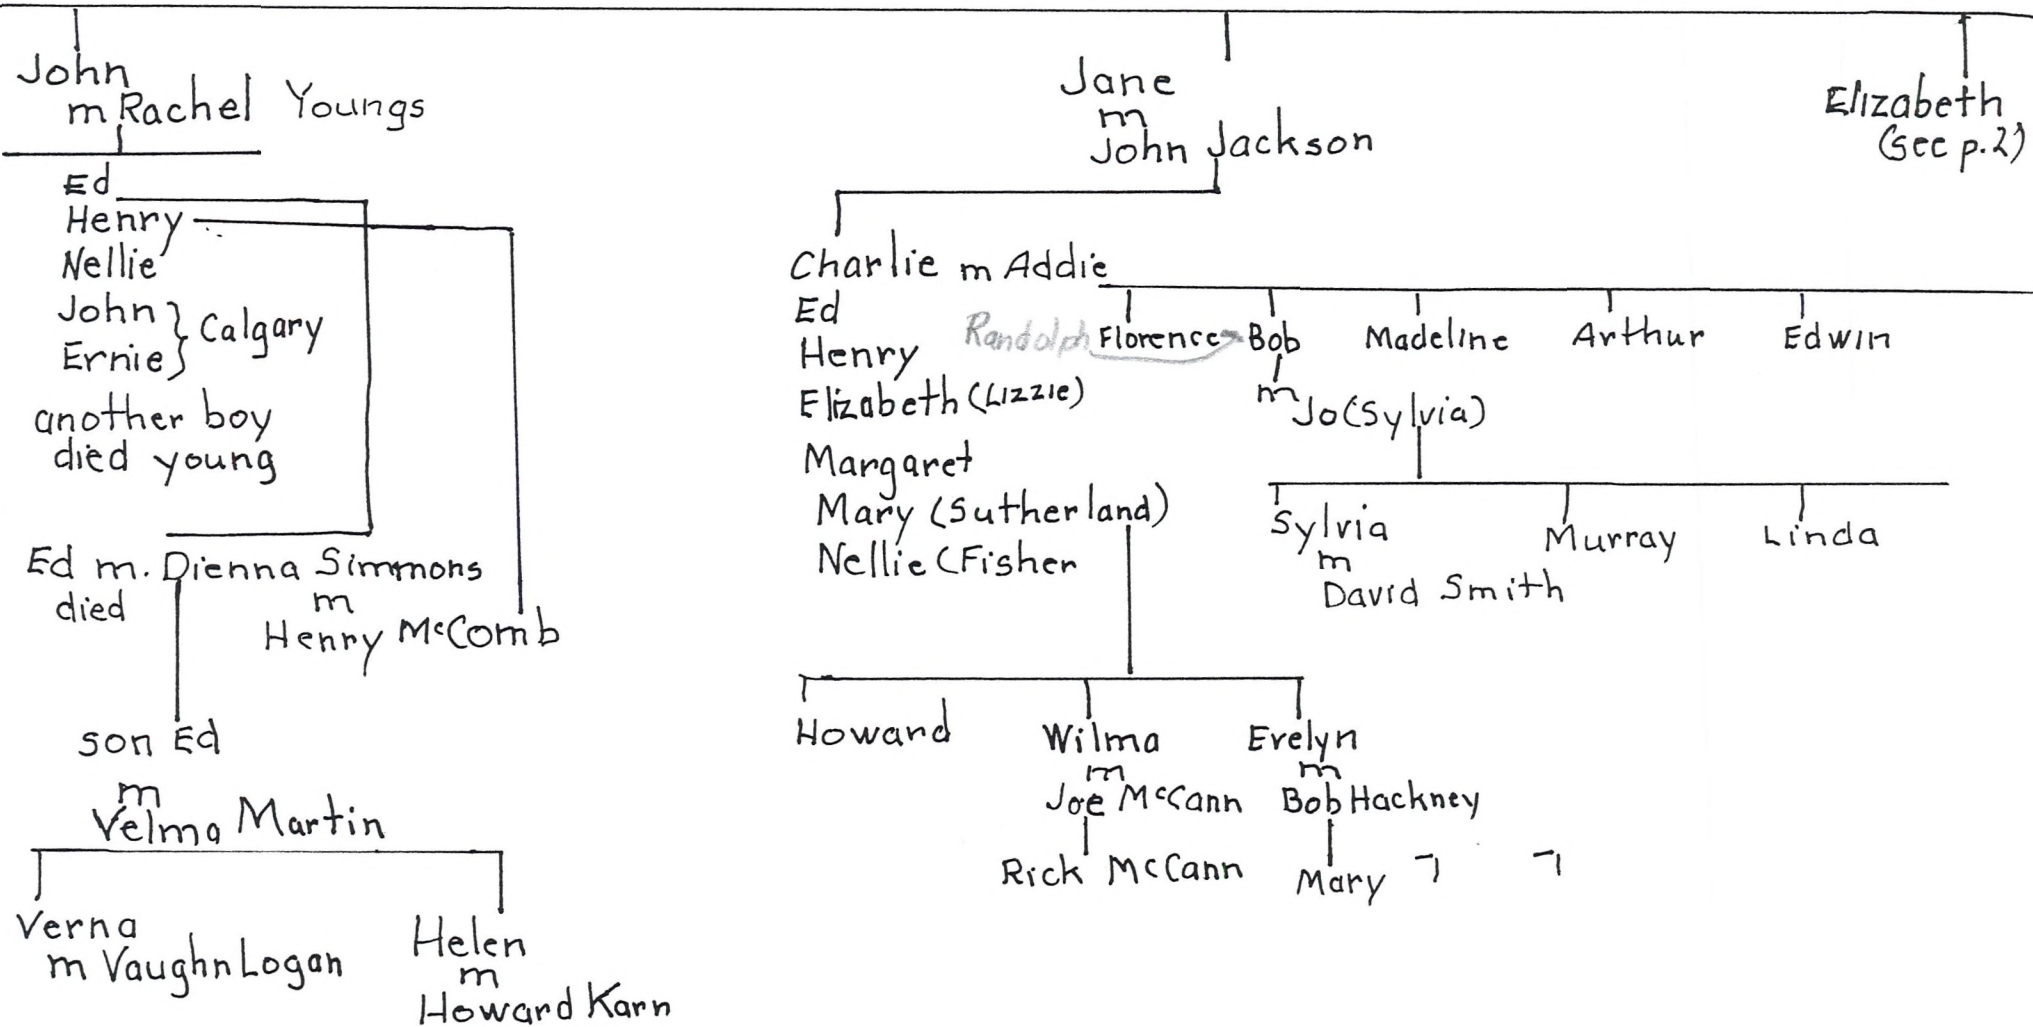 John
m Rachel Youngs
Ed
Henry
Nellie
John } Calgary
Ernie }
another boy
died young
Ed m. Dienna Simmons
died
m
Henry McComb
son Ed
m
Velma Martin
Verna
m Vaughn Logan
Helen
m
Howard Karn
Jane
m
John Jackson
Charlie m Addie
Ed
Henry
Elizabeth (Lizzie)
Margaret
Mary (Sutherland)
Nellie (Fisher
Randolph Florence Bob Madeline Arthur Edwin
m Jo (Sylvia)
Sylvia Murray Linda
m
David Smith
Howard Wilma Evelyn
m m
Joe McCann Bob Hackney
Rick McCann Mary
Elizabeth
(see p.2)